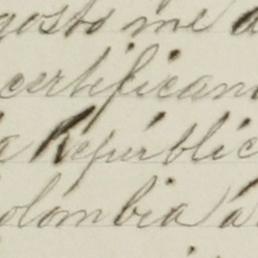 gosto me a
certifican
a República
olombia á